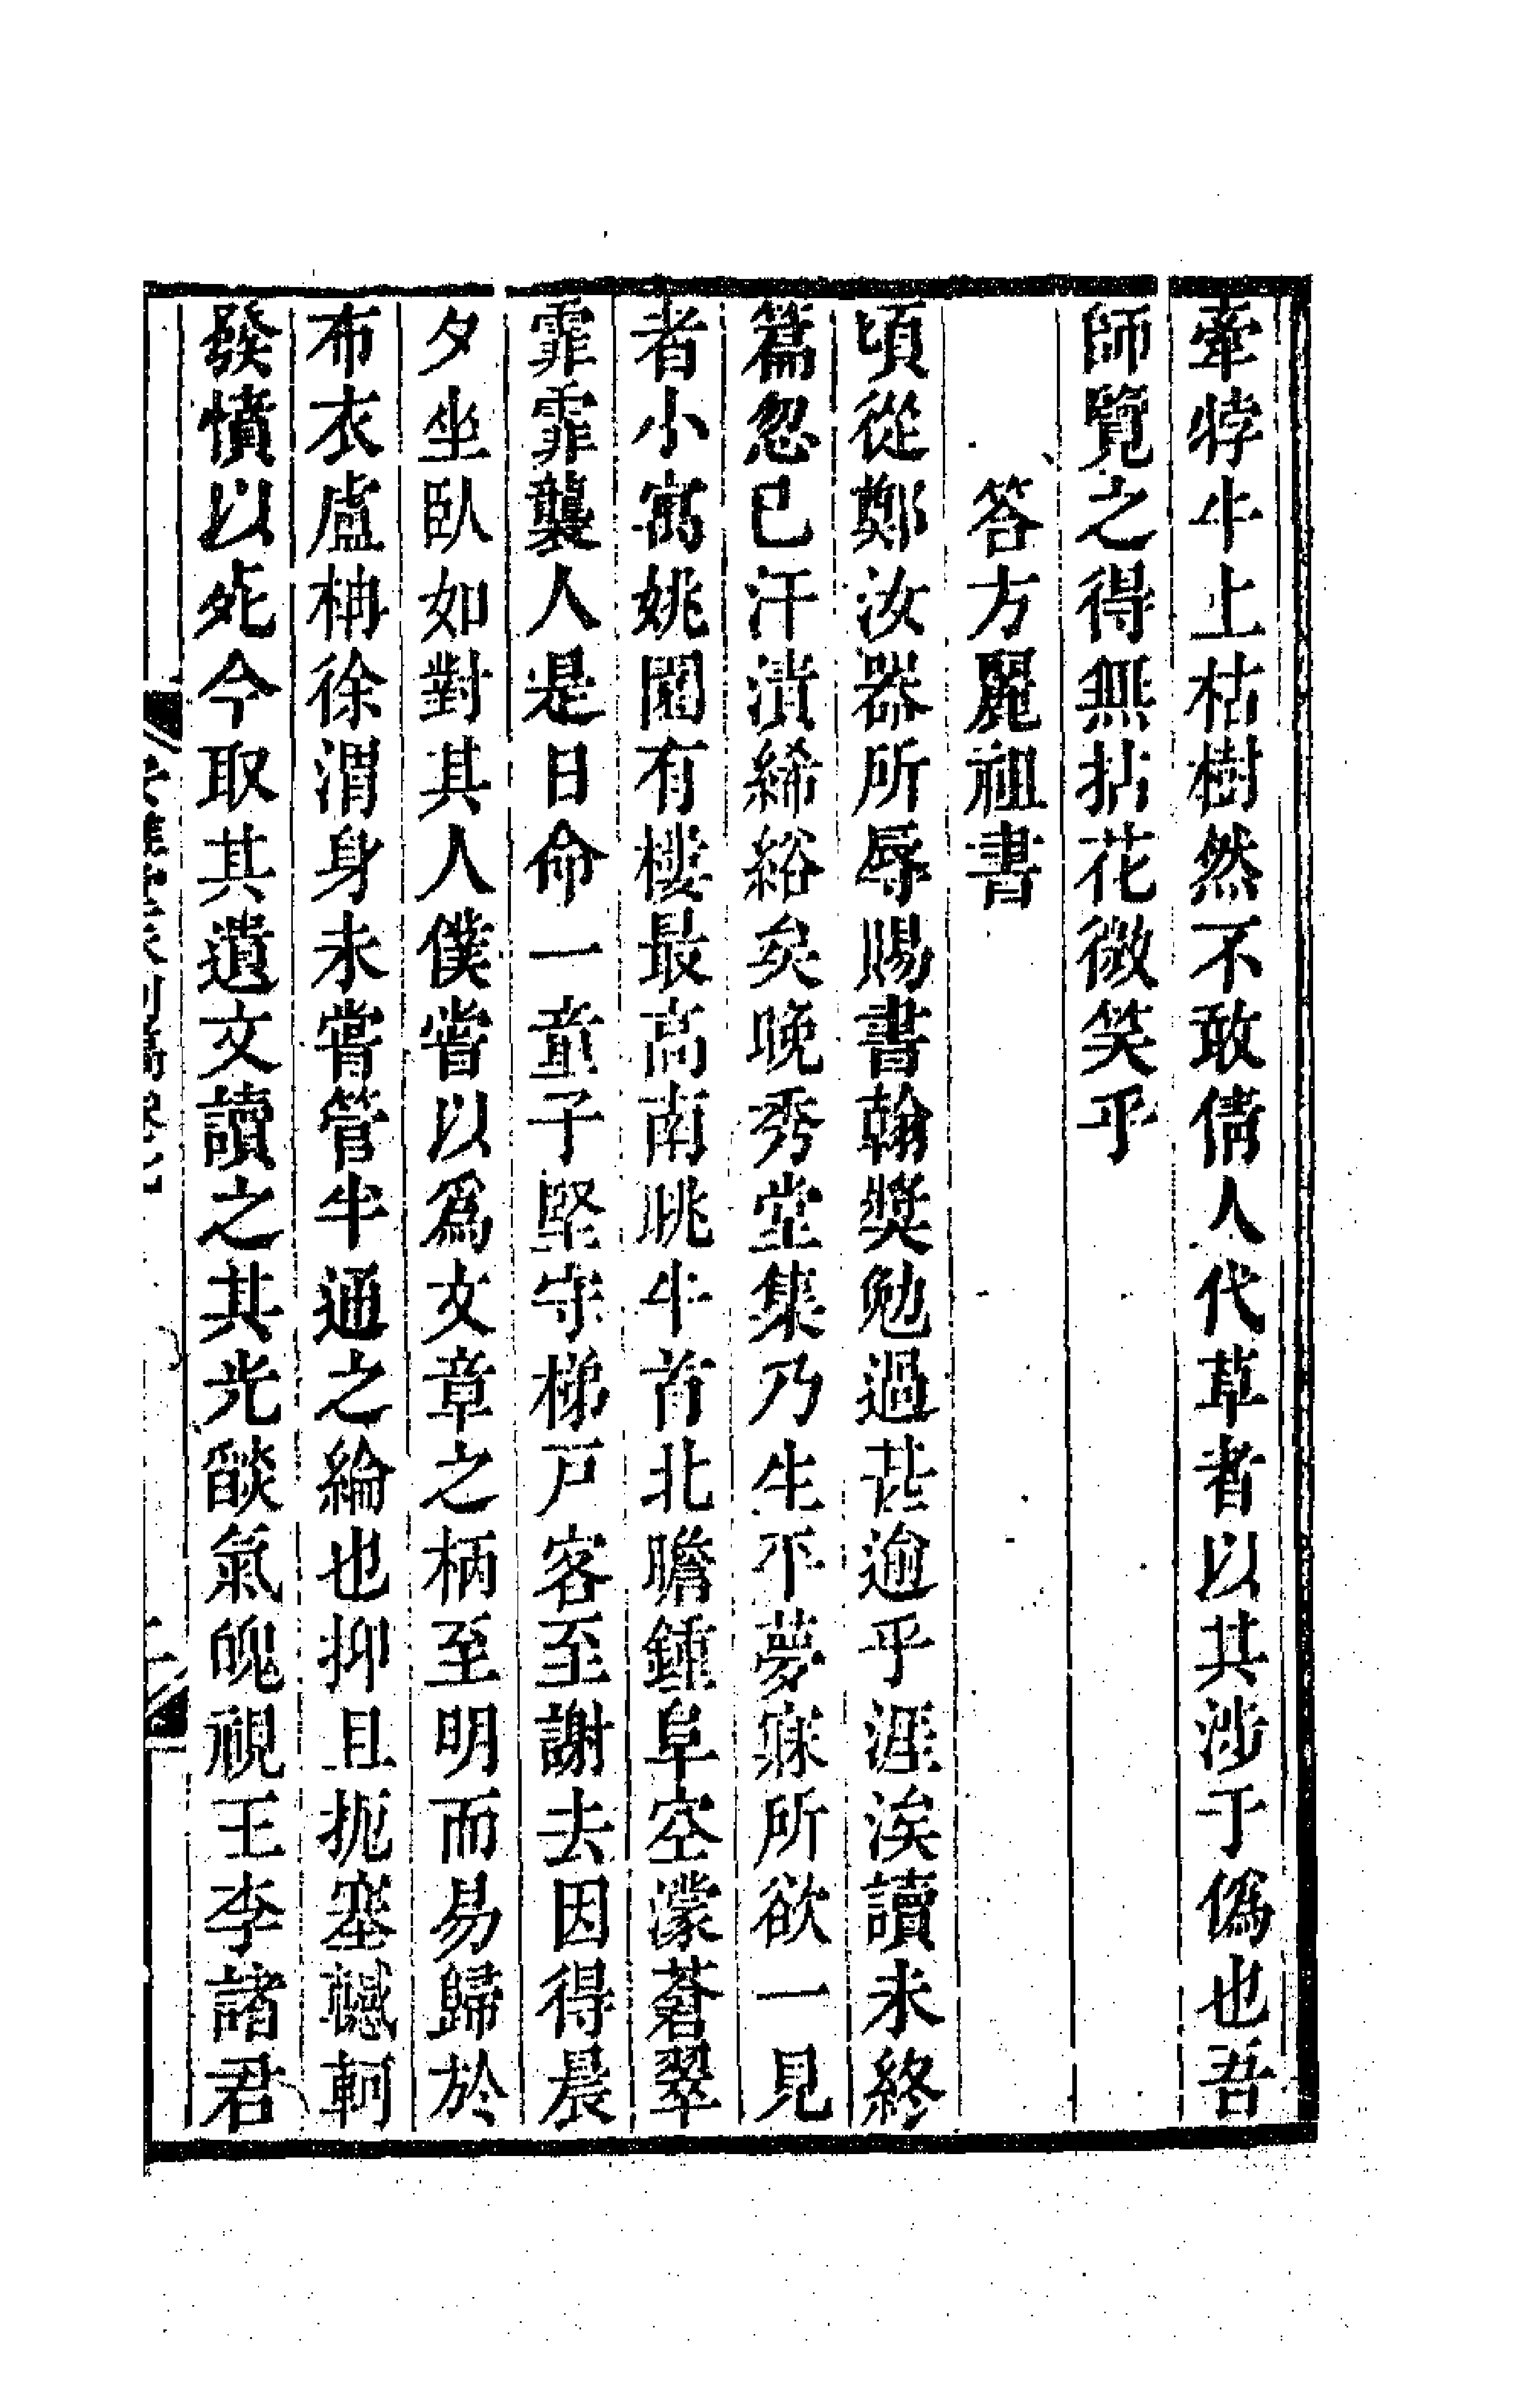 牽牸牛上枯樹然不敢倩人代草者以其涉于偽也吾
師覽之得無拈花微笑乎
答方麗祖書
頃從鄭汝器所辱賜書翰奬勉過甚逾乎涯涘讀未終
篇忽已汗漬絺綌矣晚秀堂集乃生平夢寐所欲一見
者小寓姚園有樓最高南眺牛首北瞻鍾阜空濛蒼翠
霏霏襲人是日命一童子堅守梯戸客至謝去因得晨
夕坐臥如對其人僕嘗以爲文章之柄至明而易歸於
布衣盧柟徐渭身未嘗管半通之綸也抑且扼塞轗軻
發憤以死今取其遺文讀之其光燄氣魄視王李諸君